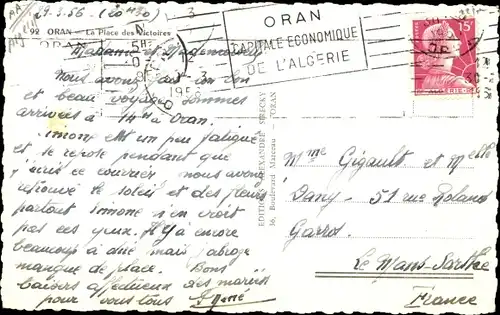 29.3.56 - (20H30)
92 ORAN - La Place des Victoires
ORAN
CAPITALE ECONOMIQUE
DE L'ALGERIE
15F
ALGERIE
Madame et Mademoiselle
Nous avons fait un bon
et beau voyage sommes
arrivées à 14H à Oran.
Simone est un peu fatiguée
et se repose pendant que
j'écris ce courrier, nous avons
retrouvé le soleil et des fleurs
partout Simone n'en croit
pas ces yeux. Il y à encore
beaucoup à dire mais j'abrège
manque de place. Bons
baisers affectueux des mariés
pour vous tous
EDITIONS ALEXANDRE
36, Boulevard Marceau - ORAN
Mme Gigault et Melle
Dany - 51 rue Roland
Garros.
Le Mans-Sarthe
France